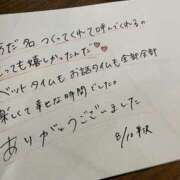 あだ名 つくってくれて呼んでくれるの
とっても嬉しかったんだ
ベットタイムもお話タイムも全部全部
楽しくて幸せな時間でした。
ありがとうございました
8/10